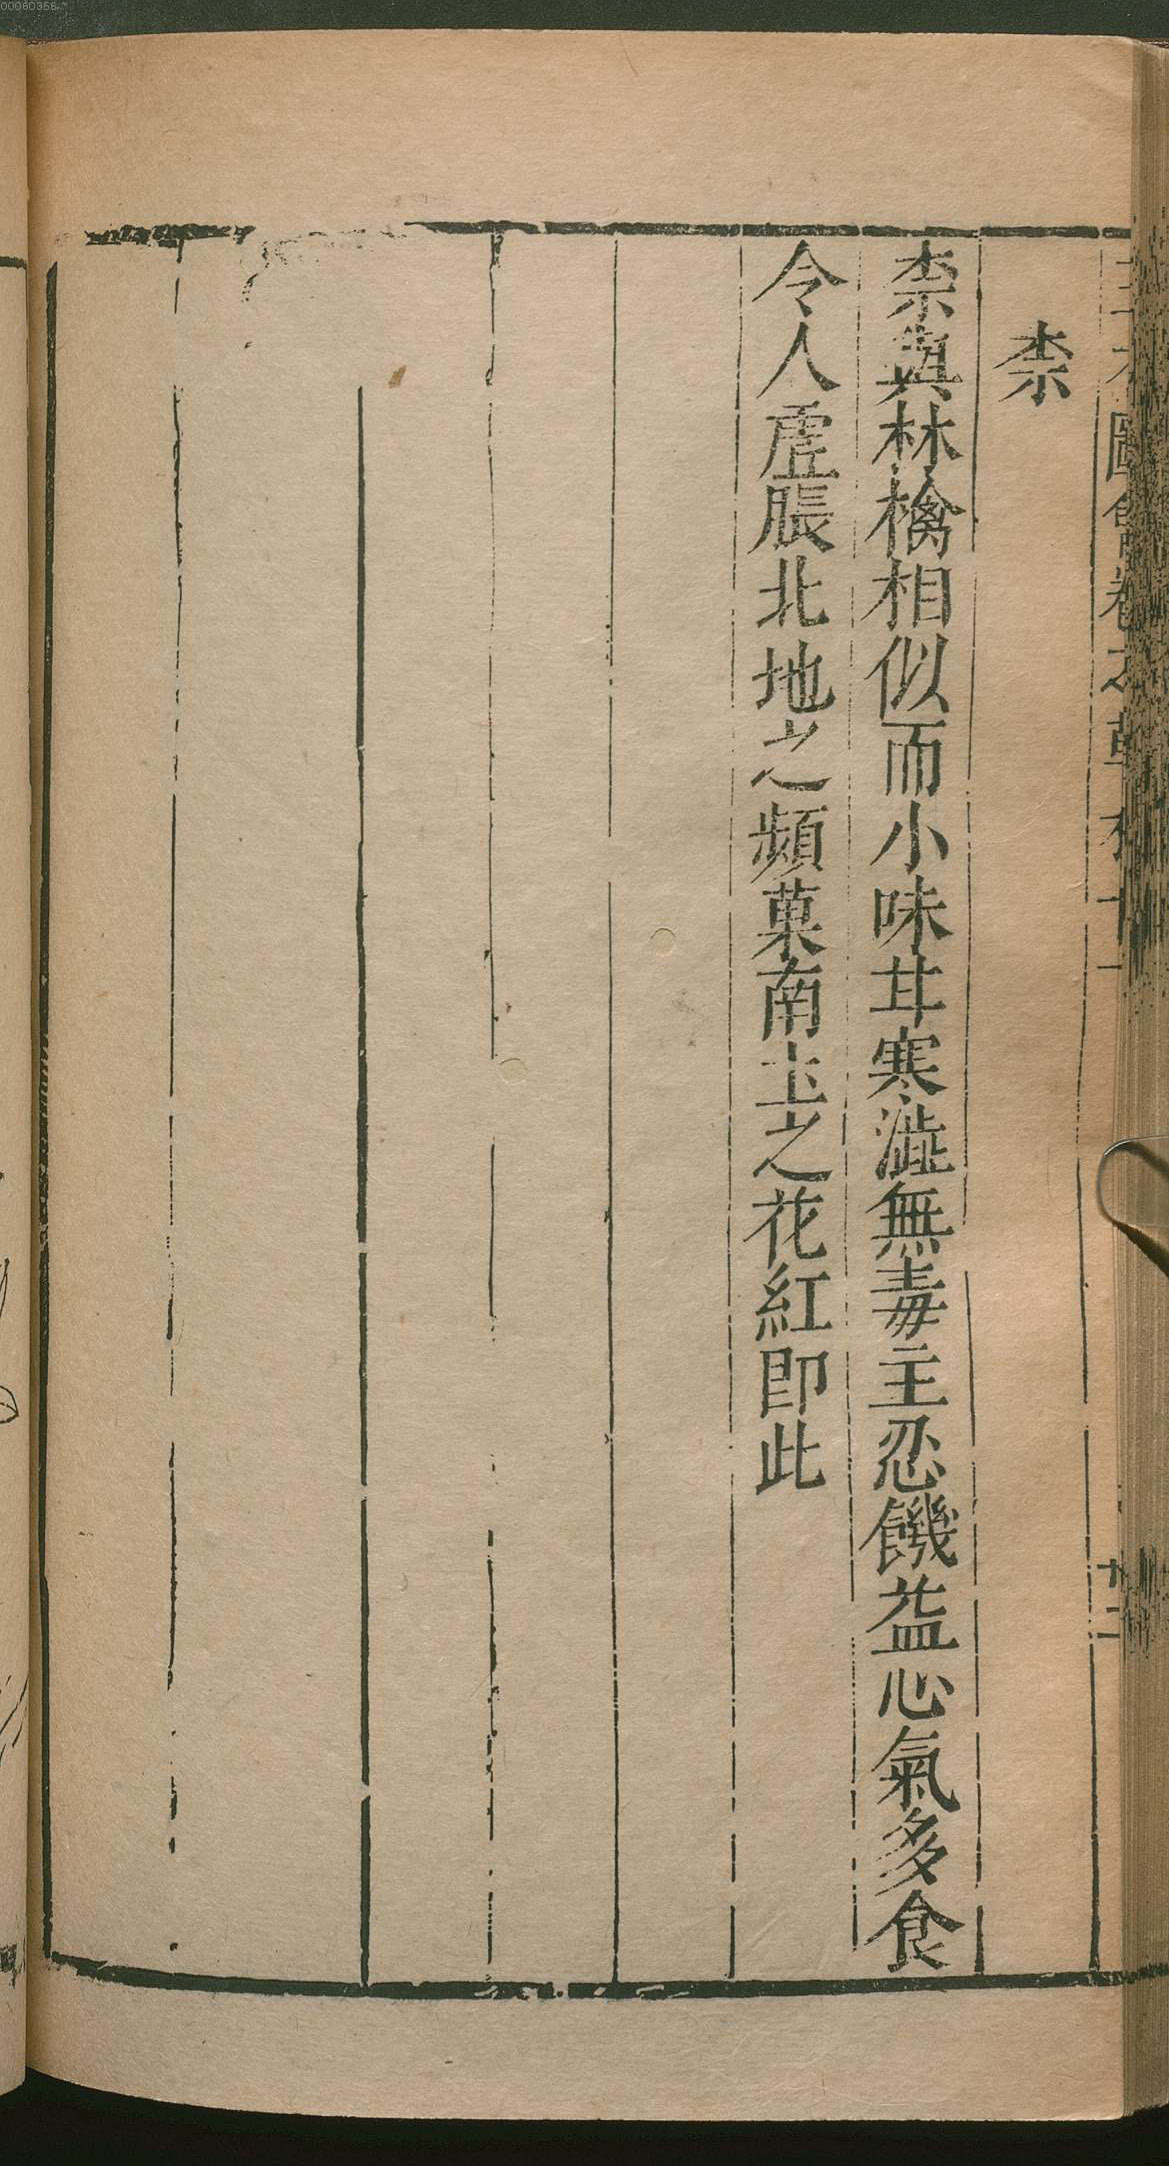 柰
柰與林檎相似而小味苷寒澁無毒主忍饑益心氣多食
令人虛脹北地之頻菓南土之花紅即此
圖會卷之草木十一
廿二
00060356